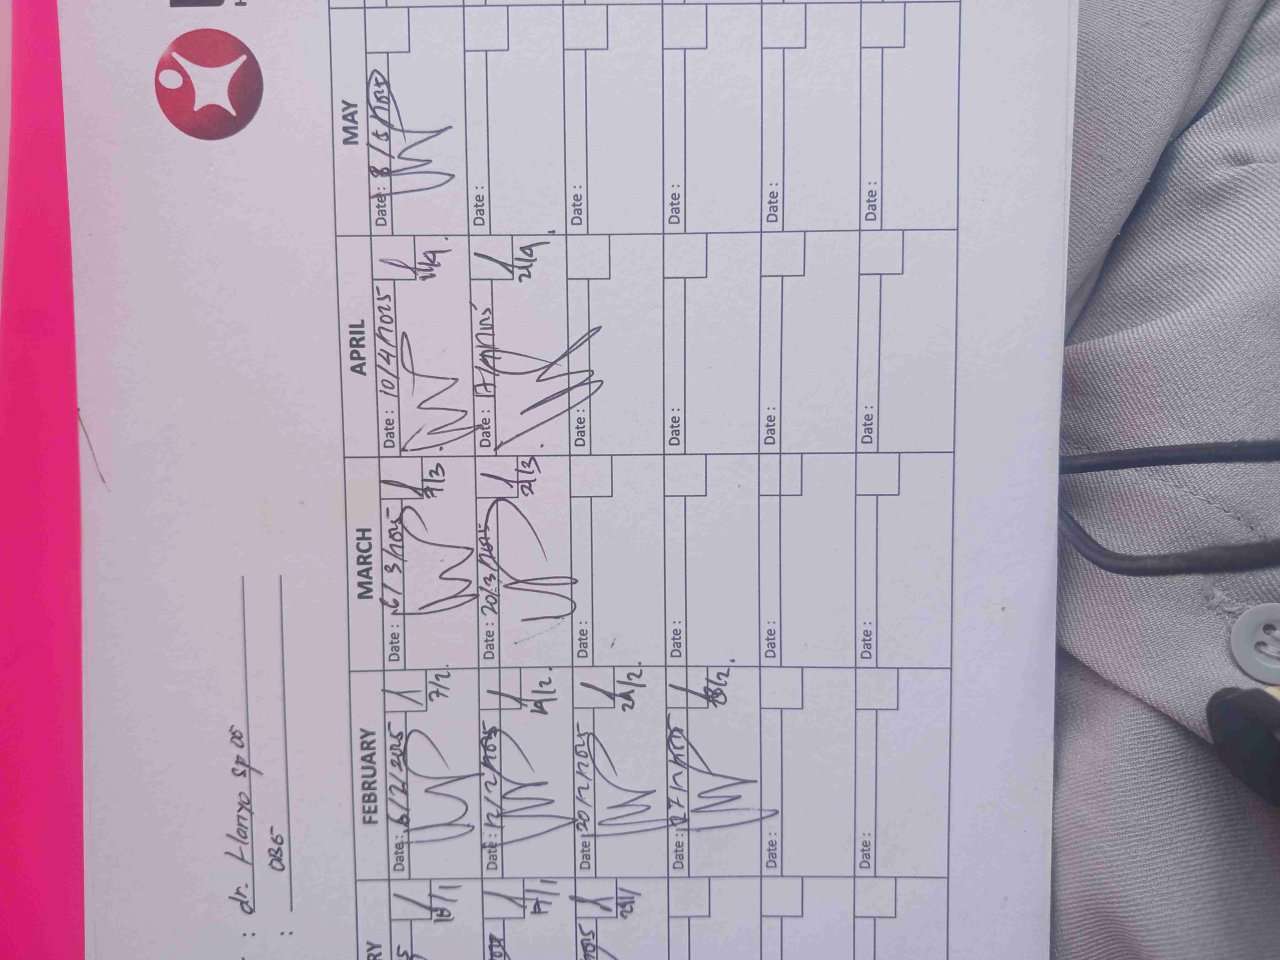 : dr. Haryo sp OG
: OBG
RY
FEBRUARY
MARCH
APRIL
MAY
5
Date : 6/2/2025
Date : 6/3/2025
Date : 10/4/2025
Date : 8/5/2025
7/2.
7/3
11/4.
Date : 12/2/2025
Date : 20/3/2025
Date : 17/4/2025
Date :
17/1
14/2.
21/3
21/4.
2025
Date : 20/2/2025
Date :
Date :
Date :
Date : 27/2/2025
Date :
Date :
Date :
28/2.
Date :
Date :
Date :
Date :
Date :
Date :
Date :
Date :